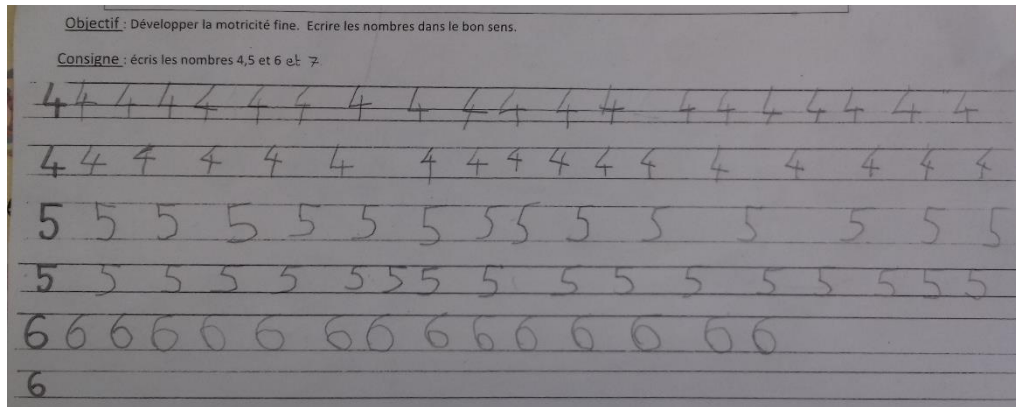 Objectif : Développer la motricité fine. Ecrire les nombres dans le bon sens.
Consigne : écris les nombres 4,5 et 6 et 7
4 4 4 4 4 4 4 4 4 4 4 4 4 4 4 4 4 4 4 4
4 4 4 4 4 4 4 4 4 4 4 4 4 4 4 4 4
5 5 5 5 5 5 5 5 5 5 5 5 5 5 5
5 5 5 5 5 5 5 5 5 5 5 5 5 5 5 5 5
6 6 6 6 6 6 6 6 6 6 6 6 6 6 6
6